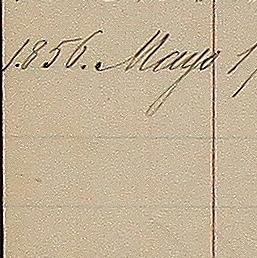 1856. Mayo 1